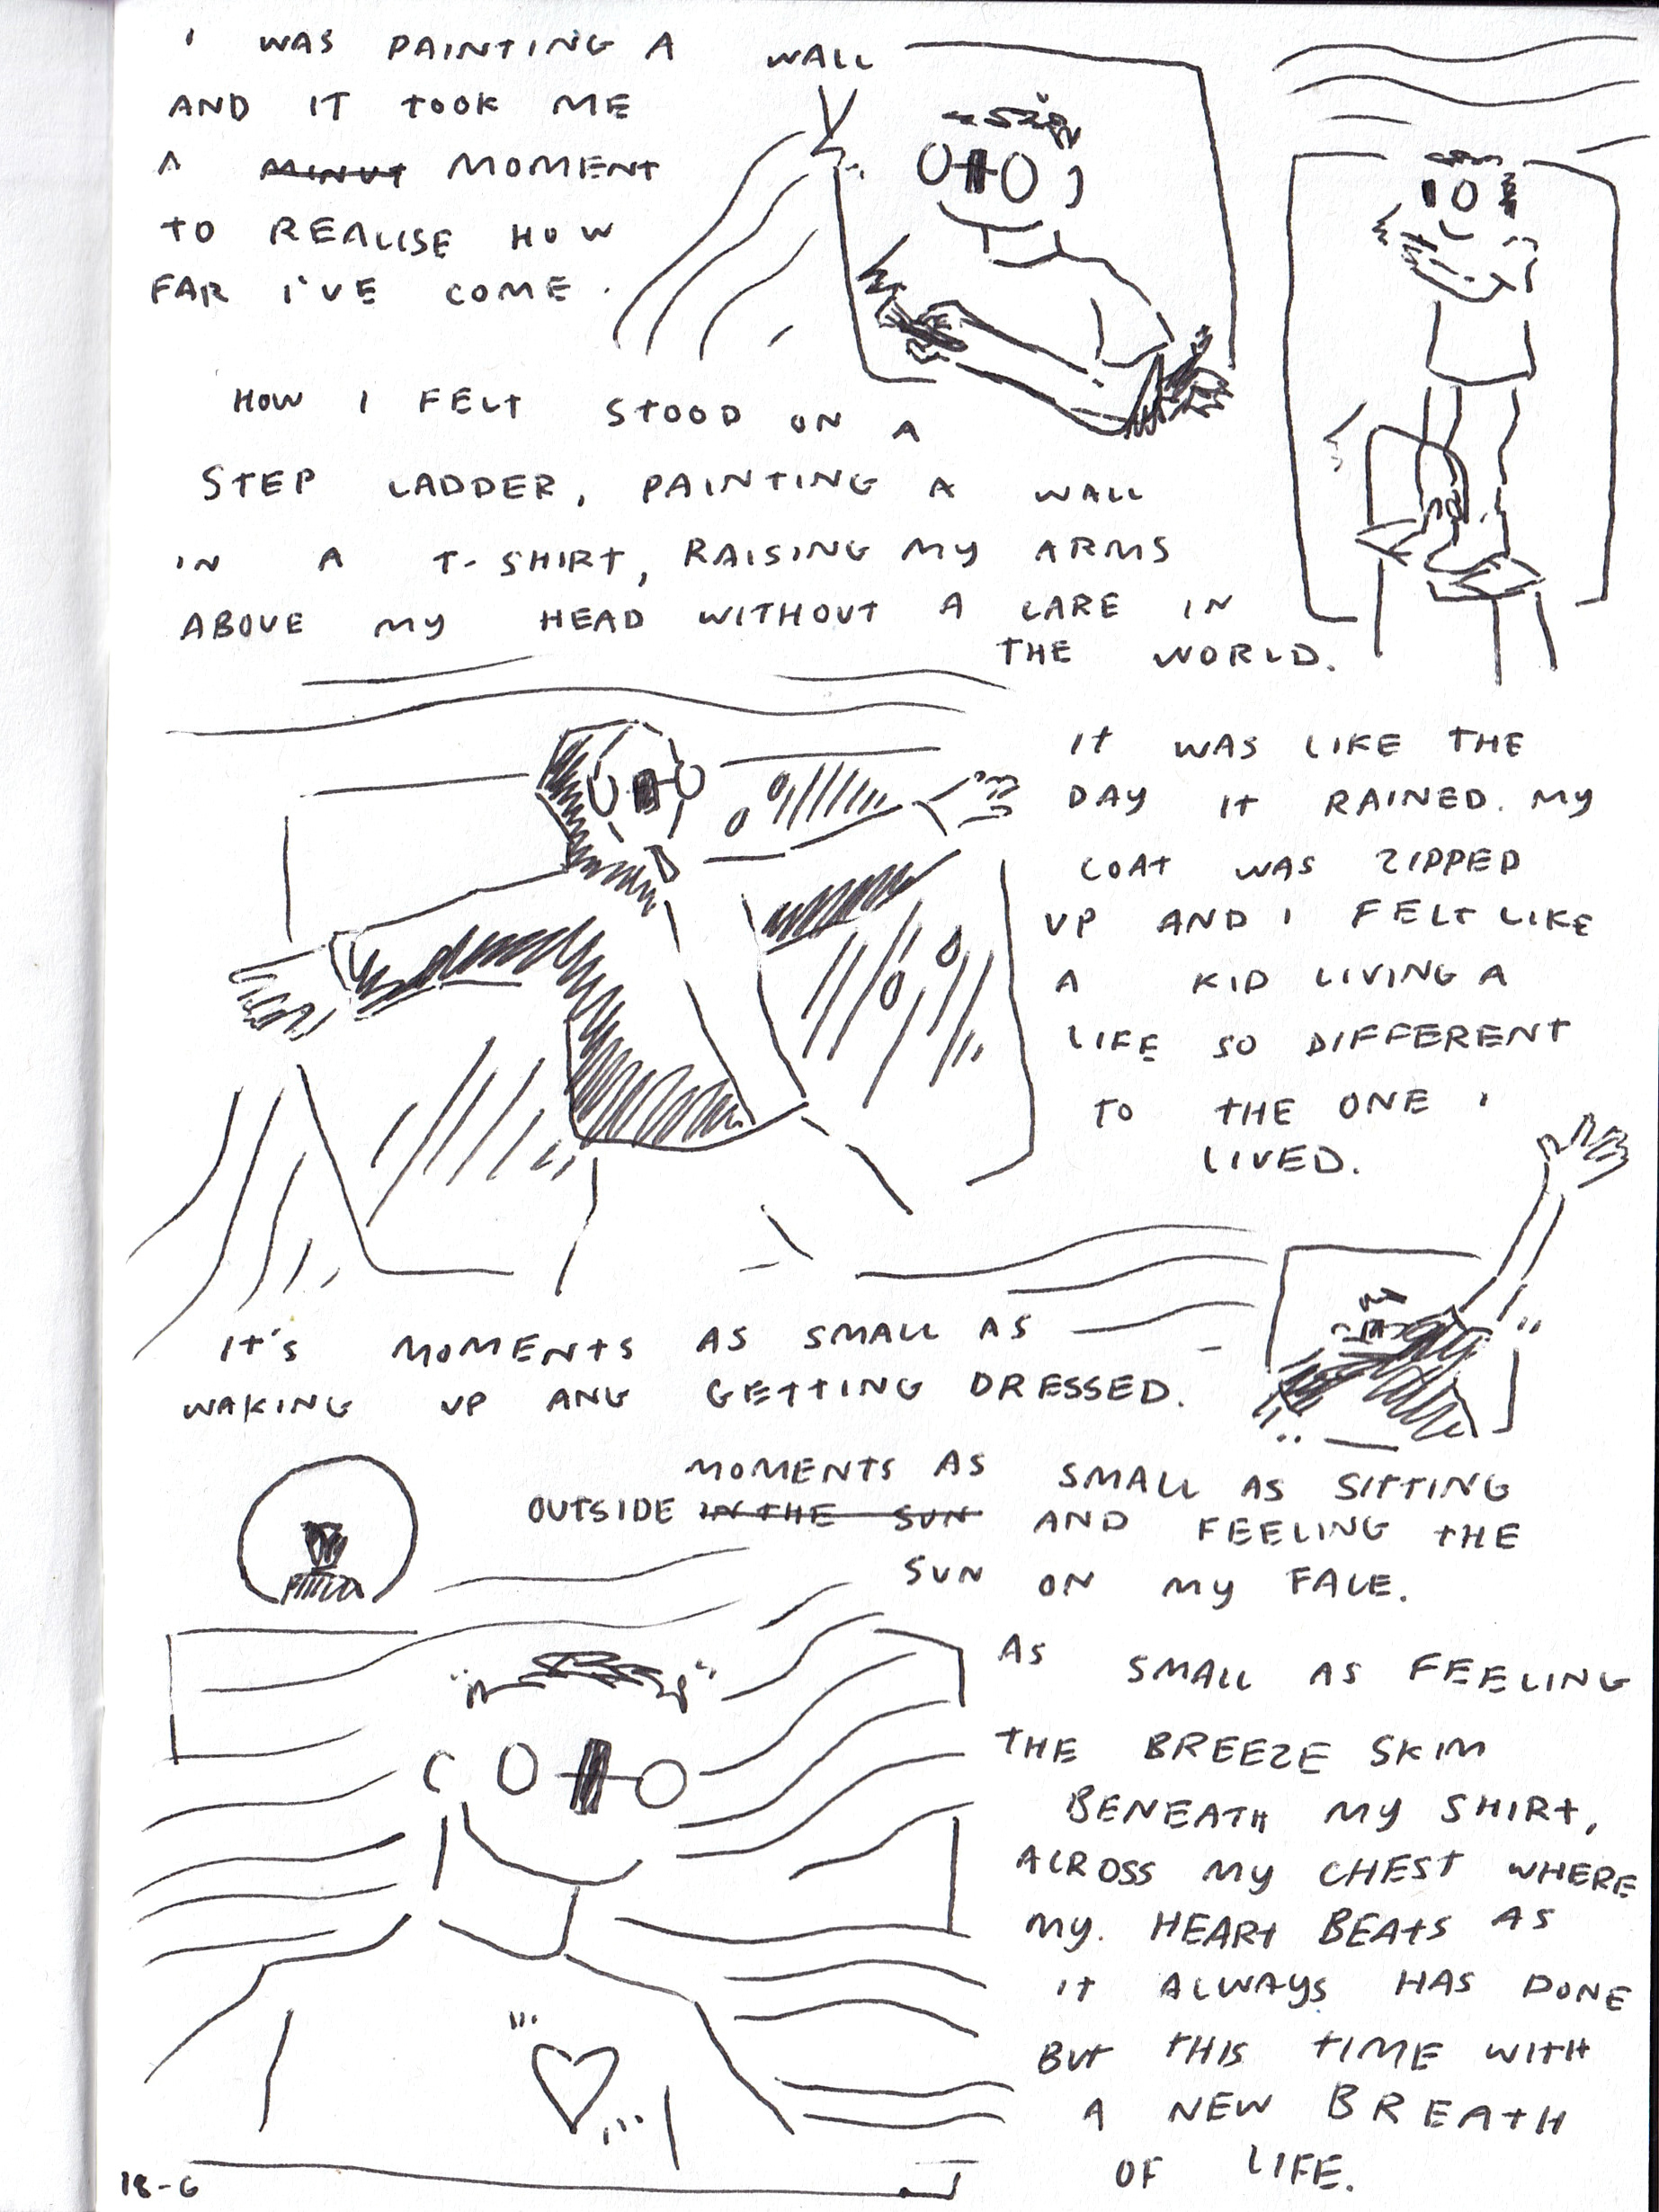 I WAS PAINTING A WALL
AND IT TOOK ME
A MINUT MOMENT
TO REALISE HOW
FAR I'VE COME.
HOW I FELT STOOD ON A
STEP LADDER, PAINTING A WALL
IN A T-SHIRT, RAISING MY ARMS
ABOVE MY HEAD WITHOUT A CARE IN
THE WORLD.
IT WAS LIKE THE
DAY IT RAINED. MY
COAT WAS ZIPPED
UP AND I FELT LIKE
A KID LIVING A
LIFE SO DIFFERENT
TO THE ONE I
LIVED.
IT'S MOMENTS AS SMALL AS
WAKING UP ANG GETTING DRESSED.
MOMENTS AS SMALL AS SITTING
OUTSIDE IN THE SUN AND FEELING THE
SUN ON MY FACE.
AS SMALL AS FEELING
THE BREEZE SKIM
BENEATH MY SHIRT,
ACROSS MY CHEST WHERE
MY. HEART BEATS AS
IT ALWAYS HAS DONE
BUT THIS TIME WITH
A NEW BREATH
OF LIFE.
18-6